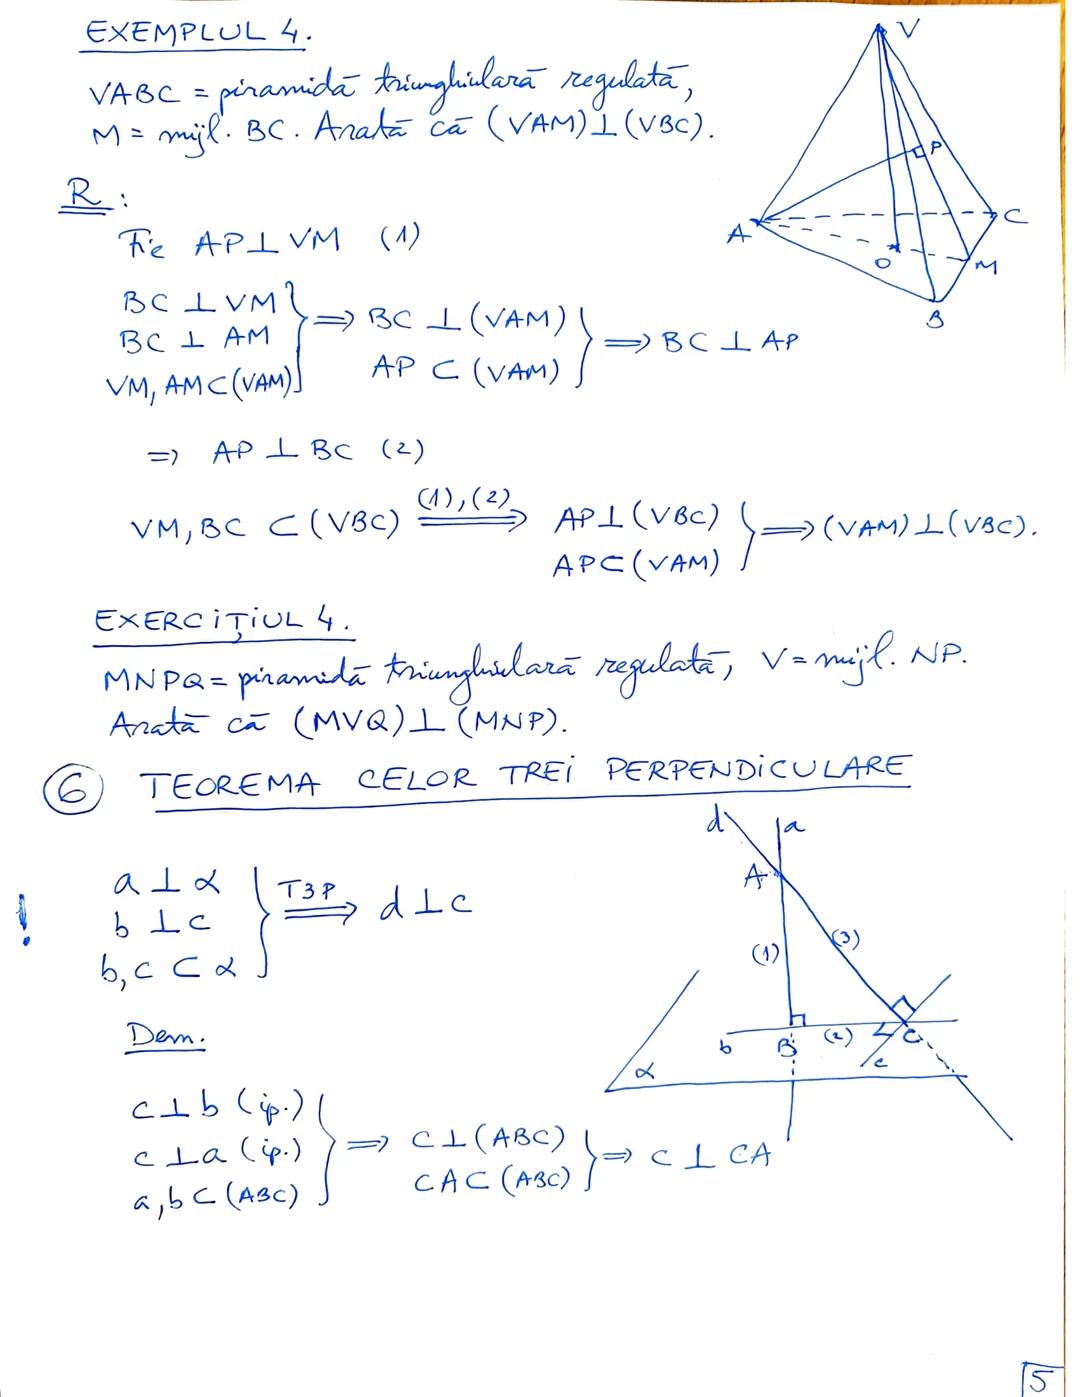 EXEMPLUL 4.
VABC = piramidă triunghiulară regulată,
M = mijl. BC. Arată că (VAM)⊥(VBC).
R:
Fie AP⊥VM (1)
BC ⊥ VM
BC ⊥ AM
VM, AM⊂(VAM)
} ⟹ BC ⊥ (VAM)
AP ⊂ (VAM)
} ⟹ BC ⊥ AP
V
P
A
C
O
M
B
⟹ AP ⊥ BC (2)
VM, BC ⊂ (VBC) (1),(2) ⟹ AP⊥(VBC)
AP⊂(VAM)
} ⟹ (VAM)⊥(VBC).
EXERCIȚIUL 4.
MNPQ = piramidă triunghiulară regulată, V = mijl. NP.
Arată că (MVQ)⊥(MNP).
6 TEOREMA CELOR TREI PERPENDICULARE
! a ⊥ α
b ⊥ c
b, c ⊂ α
} T3P ⟹ d⊥c
d
a
A
(1)
(3)
b
B
(2)
C
c
α
Dem.
c⊥b (ip.)
c⊥a (ip.)
a, b ⊂ (ABC)
} ⟹ c⊥(ABC)
CA⊂(ABC)
} ⟹ c ⊥ CA
5